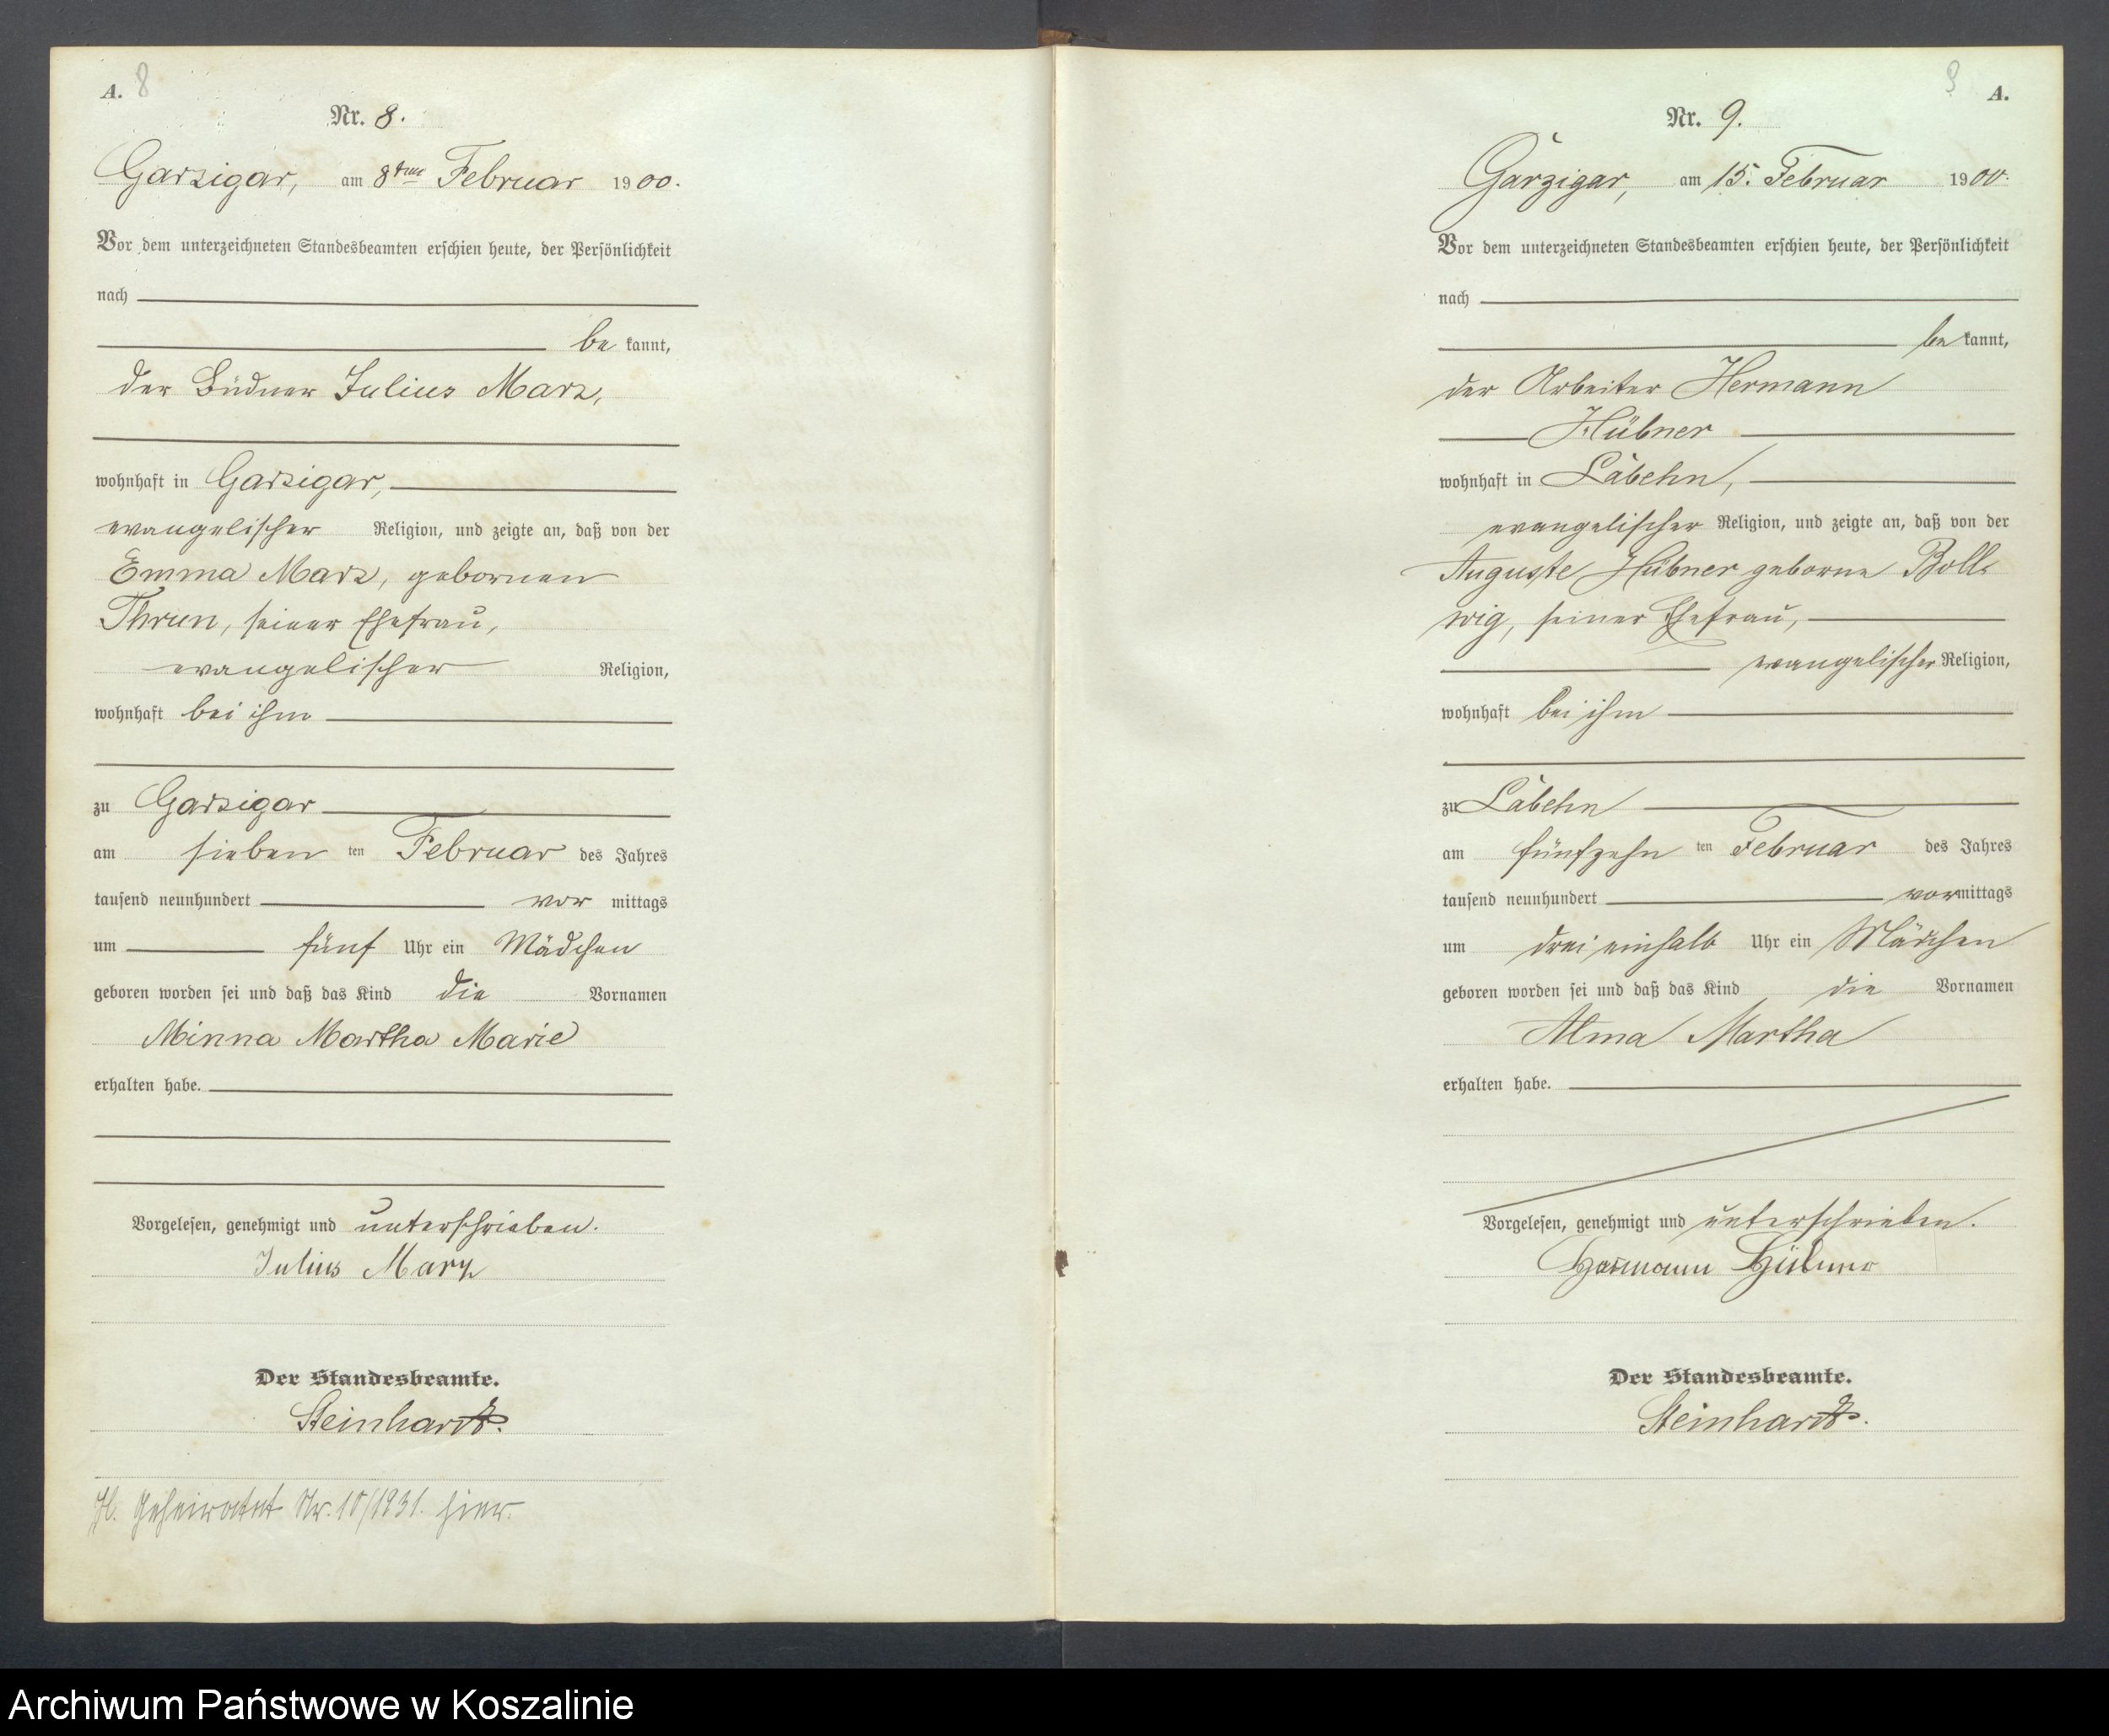 A. 8
Nr. 8.
Garzigar, am 8ten Februar 1900.
Vor dem unterzeichneten Standesbeamten erschien heute, der Persönlichkeit
nach
be kannt,
der Büdner Julius Marx,
wohnhaft in Garzigar,
evangelischer Religion, und zeigte an, daß von der
Emma Marx, gebornen
Thrun, seiner Ehefrau,
evangelischer Religion,
wohnhaft bei ihm
zu Garzigar
am sieben ten Februar des Jahres
tausend neunhundert vor mittags
um fünf Uhr ein Mädchen
geboren worden sei und daß das Kind die Vornamen
Minna Martha Marie
erhalten habe.
Vorgelesen, genehmigt und unterschrieben.
Julius Marx
Der Standesbeamte.
Steinhardt.
Geheiratet Nr. 10/1931. hier.
9 A.
Nr. 9.
Garzigar, am 15. Februar 1900.
Vor dem unterzeichneten Standesbeamten erschien heute, der Persönlichkeit
nach
be kannt,
der Arbeiter Hermann
Hübner
wohnhaft in Labehn,
evangelischer Religion, und zeigte an, daß von der
Auguste Hübner geborne Boll-
wig, seiner Ehefrau,
evangelischer Religion,
wohnhaft bei ihm
zu Labehn
am fünfzehn ten Februar des Jahres
tausend neunhundert vor mittags
um drei einhalb Uhr ein Mädchen
geboren worden sei und daß das Kind die Vornamen
Alma Martha
erhalten habe.
Vorgelesen, genehmigt und unterschrieben.
Hermann Hübner
Der Standesbeamte.
Steinhardt.
Archiwum Państwowe w Koszalinie